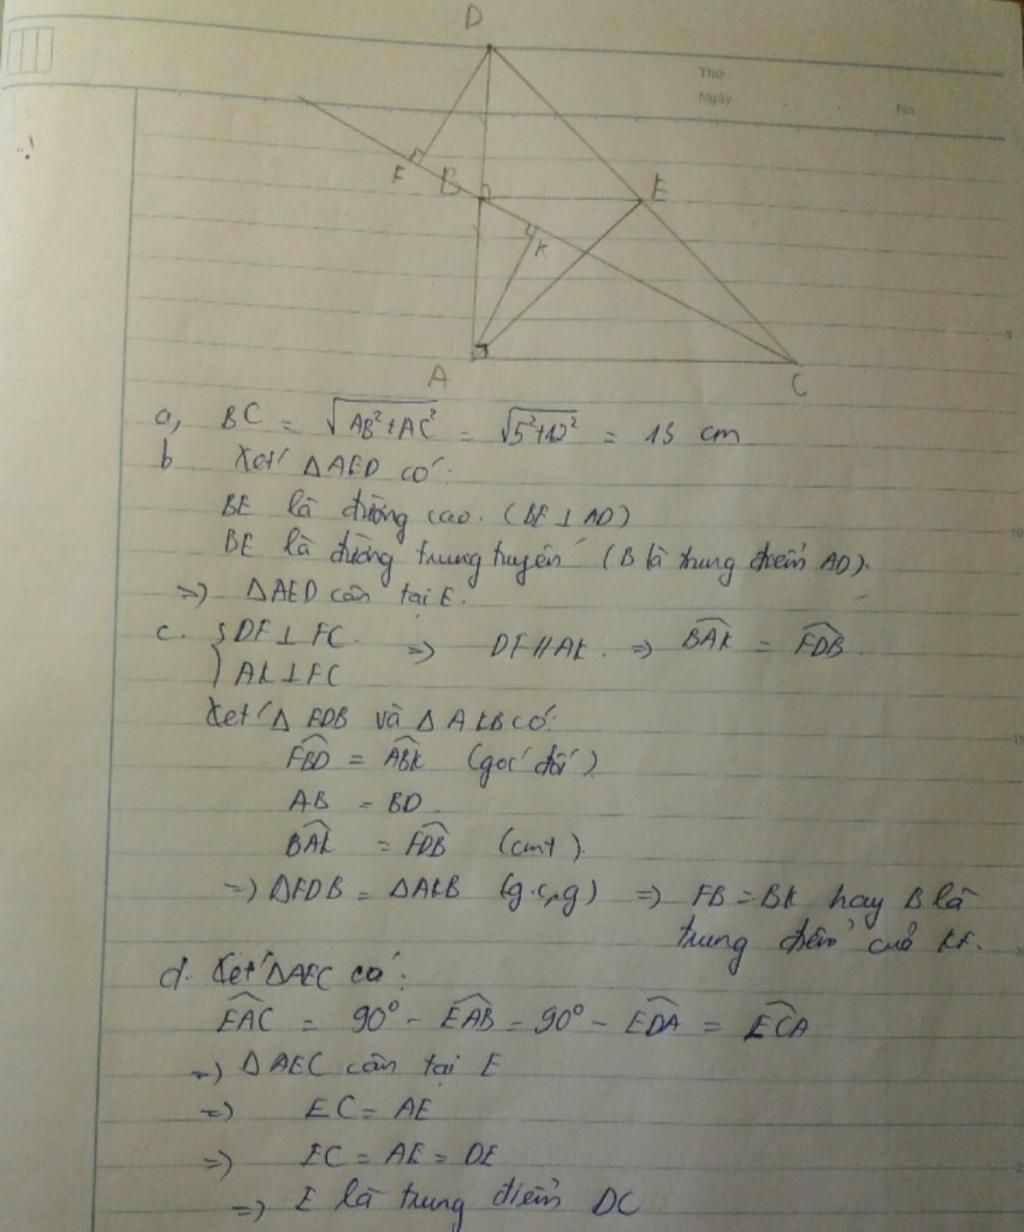 D
Thứ
Ngày
No.
F B E
K
A C
a, BC = √AB²+AC² = √5²+12² = 13 cm
b. Xét ΔAED có:
BE là đường cao. (BE ⊥ AD)
BE là đường trung tuyến (B là trung điểm AD).
=> ΔAED cân tại E.
c. { DF ⊥ FC. => DF // AK. => BAK = FDB
AK ⊥ FC
Xét Δ FDB và Δ AKB có:
FBD = ABK (góc đối)
AB = BD.
BAK = FDB (cmt).
=> ΔFDB = ΔAKB (g.c.g) => FB = BK hay B là
trung điểm của KF.
d. Xét ΔAEC có:
EAC = 90° - EAB = 90° - EDA = ECA
=> ΔAEC cân tại E
=> EC = AE
=> EC = AE = DE
=> E là trung điểm DC